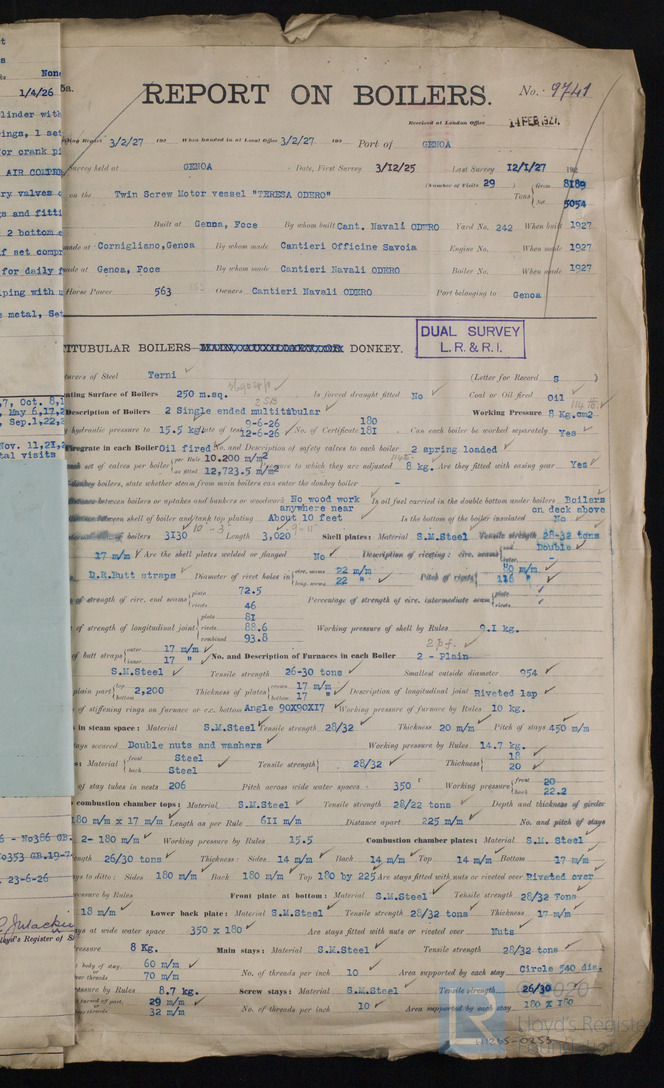 None
1/4/26
5a.
REPORT ON BOILERS.
No. 9741
Received at London Office 14 FEB 1927
Report 3/2/27 192 When handed in at Local Office 3/2/27 192 Port of GENOA
Survey held at GENOA Date, First Survey 3/12/25 Last Survey 12/1/27 192
(Number of Visits 29 ) Tons { Gross 8189
Net 5054
on the Twin Screw Motor vessel "TERESA ODERO"
Built at Genna, Foce By whom built Cant. Navali ODERO Yard No. 242 When built 1927
made at Cornigliano, Genoa By whom made Cantieri Officine Savoia Engine No. When made 1927
made at Genoa, Foce By whom made Cantieri Navali ODERO Boiler No. When made 1927
Horse Power 563 Owners Cantieri Navali ODERO Port belonging to Genoa
DUAL SURVEY
L. R. & R. I.
TITUBULAR BOILERS MAIN, AUXILIARY, OR DONKEY.
of Steel Terni (Letter for Record S )
Heating Surface of Boilers 250 m.sq. Is forced draught fitted No Coal or Oil fired Oil
Description of Boilers 2 Single ended multitubular Working Pressure 8 Kg.cm2
hydraulic pressure to 15.5 kg. Date of test 9-6-26 12-6-26 No. of Certificate 180 181 Can each boiler be worked separately Yes
Firegrate in each Boiler Oil fired No. and Description of safety valves to each boiler 2 spring loaded
set of valves per boiler { per Rule 10.200 m/m2
as fitted 12,723.5 m/m2 Pressure to which they are adjusted 8 kg. Are they fitted with easing gear Yes
donkey boilers, state whether steam from main boilers can enter the donkey boiler -
distance between boilers or uptakes and bunkers or woodwork No wood work anywhere near Is oil fuel carried in the double bottom under boilers Boilers on deck above
distance between shell of boiler and tank top plating About 10 feet Is the bottom of the boiler insulated No
of boilers 3130 Length 3,020 Shell plates: Material S.M.Steel Tensile strength 28-32 tons
17 m/m Are the shell plates welded or flanged No Description of riveting: circ. seams Double
D.R.Butt straps Diameter of rivet holes in { circ. seams 22 m/m
long. seams 22 " Pitch of rivets { 80 m/m
116 "
of strength of circ. end seams { plate 72.5
rivets 46 Percentage of strength of circ. intermediate seam { plate
rivets
of strength of longitudinal joint { plate 81
rivets 88.6
combined 93.8 Working pressure of shell by Rules 9.1 kg.
of butt straps { outer 17 m/m
inner 17 " No. and Description of Furnaces in each Boiler 2 - Plain
S.M.Steel Tensile strength 26-30 tons Smallest outside diameter 954
plain part { top 2,200
bottom Thickness of plates { crown 17 m/m
bottom 17 " Description of longitudinal joint Riveted lap
of stiffening rings on furnace or c.c. bottom Angle 90X90X17 Working pressure of furnace by Rules 10 kg.
in steam space: Material S.M.Steel Tensile strength 28/32 Thickness 20 m/m Pitch of stays 450 m/m
stays secured Double nuts and washers Working pressure by Rules 14.7 kg.
Material { front Steel
back Steel Tensile strength { 28/32 Thickness { 18
20
of stay tubes in nests 206 Pitch across wide water spaces 350 Working pressure { front 20
back 22.2
combustion chamber tops: Material S.M.Steel Tensile strength 28/22 tons Depth and thickness of girder
180 m/m x 17 m/m Length as per Rule 611 m/m Distance apart 225 m/m No. and pitch of stays
2- 180 m/m Working pressure by Rules 15.5 Combustion chamber plates: Material S.M. Steel
26/30 tons Thickness: Sides 14 m/m Back 14 m/m Top 14 m/m Bottom 17 m/m
stays to ditto: Sides 180 m/m Back 180 m/m Top 180 by 225 Are stays fitted with nuts or riveted over Riveted over
pressure by Rules Front plate at bottom: Material S.M.Steel Tensile strength 28/32 Tons
18 m/m Lower back plate: Material S.M.Steel Tensile strength 28/32 tons Thickness 17 m/m
stays at wide water space 350 x 180 Are stays fitted with nuts or riveted over Nuts
Pressure 8 Kg. Main stays: Material S.M.Steel Tensile strength 28/32 tons
body of stay, 60 m/m
over threads 70 m/m No. of threads per inch 10 Area supported by each stay Circle 540 dia.
pressure by Rules 8.7 kg. Screw stays: Material S.M.Steel Tensile strength 26/30
turned off part, 29 m/m
threads 32 m/m No. of threads per inch 10 Area supported by each stay 180 X 180
© 2020
Lloyd's Register
Foundation